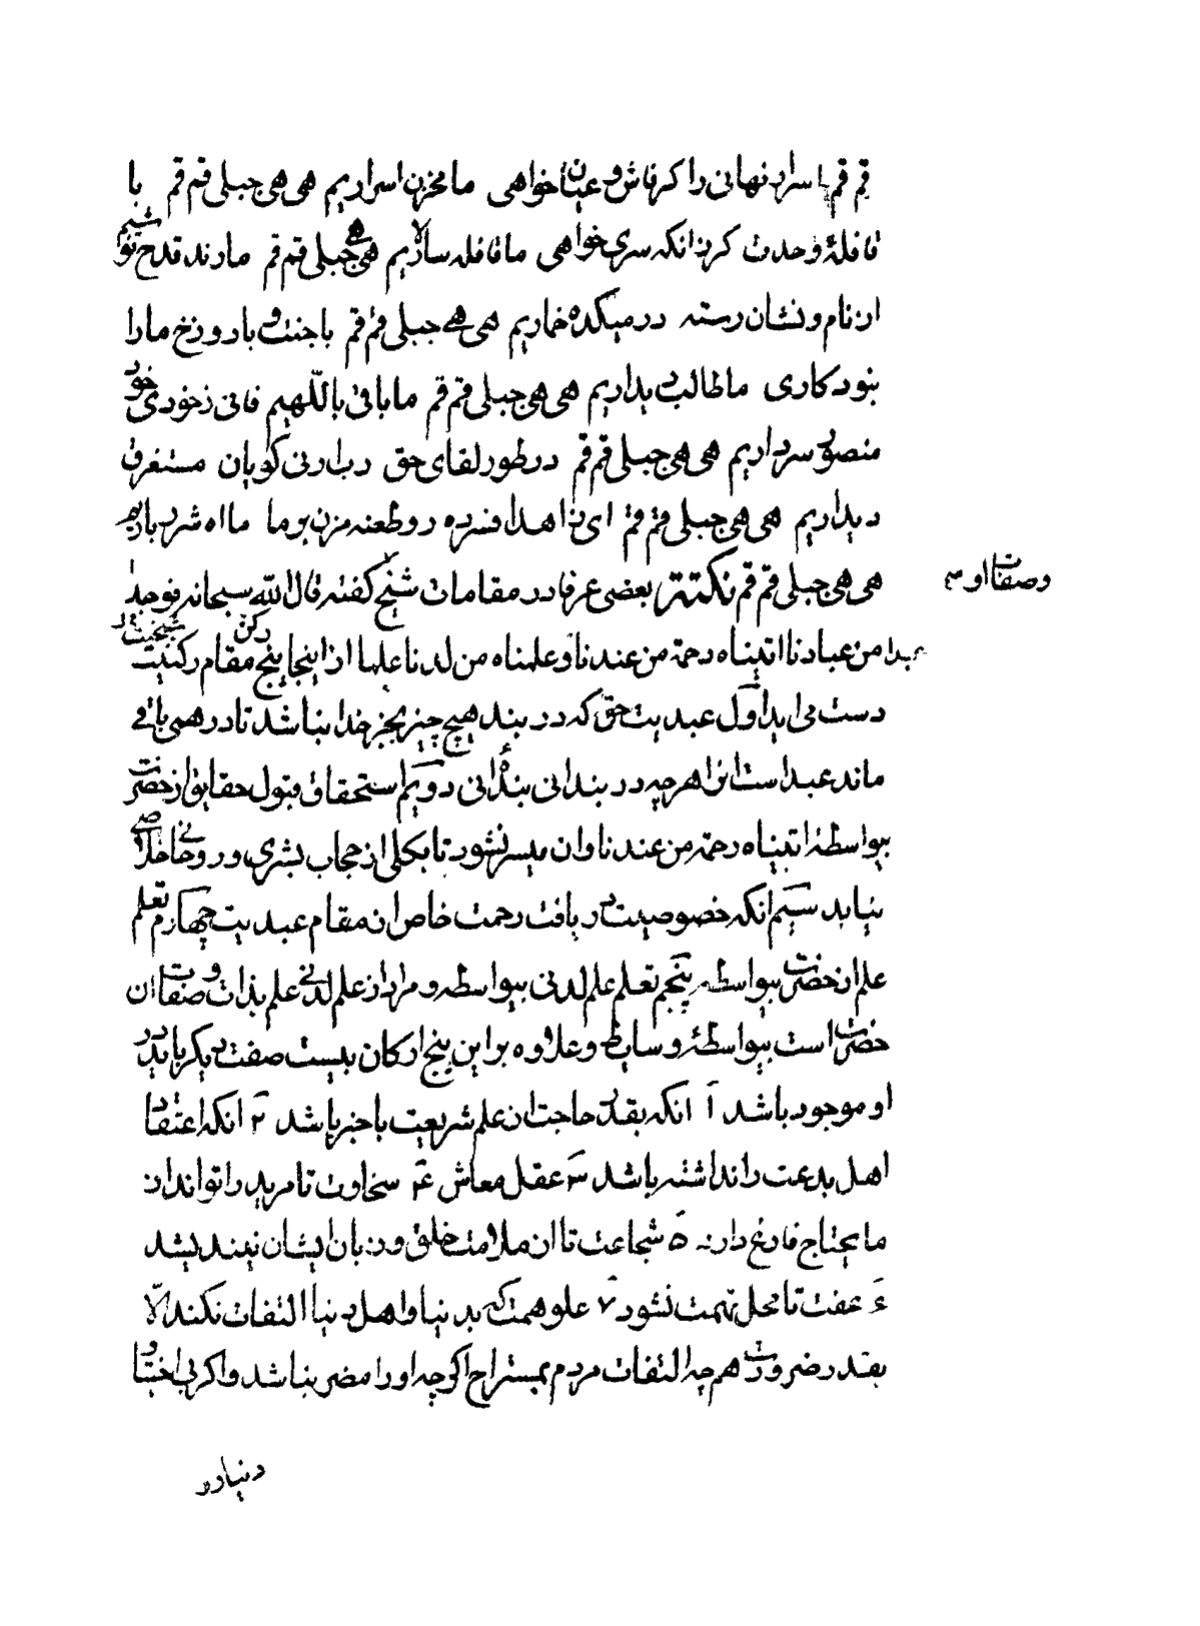 قم قم اسرار نهانی را کر فاش و عیان خواهی ما مخزن اسراریم هی هی جبلی قم قم با
قافلهٔ وحدت کر زانکه سری خواهی ما قافله سالاریم هی هی جبلی قم قم ما رند قدح نوشیم
از نام و نشان رسته در میکده خماریم هی هی جبلی قم قم با جنت و با دوزخ ما را
نبود کاری ما طالب دیداریم هی هی جبلی قم قم ما باقی باللهیم فانی ز خودی خود
منصور سرداریم هی هی جبلی قم قم در طور لقای حق رب ارنی کویان مستغرق
دیداریم هی هی جبلی قم قم ای زاهد افسرده رو طعنه مزن بر ما ما اه شرر باریم
هی هی جبلی قم قم نکتة بعضی عرفا در مقامات شیخ کفته قال الله سبحانه فوجدا
وصفات او
عبدا من عبادنا اتیناه رحمة من عندنا و علمناه من لدنا علما از اینجا پنج مقام رکن شیخیت
دست می اید اول عبدیت حق که در بند هیچ چیز بجز خدا نباشد تا در هر چه باقی
ماند عبد است از انرا هر چه در بند انی بندهٔ انی دویم استحقاق قبول حقایق از حضرت
بیواسطهٔ اتیناه رحمة من عندنا و ان میسر نشود تا بکلی از حجاب بشری و روحانی خلاصی
نیابد سیم انکه خصوصیت دریافت رحمت خاص از مقام عبدیت چهارم تعلم
علم از حضرت بیواسطه پنجم تعلم علم لدنی بیواسطه و مراد از علم لدنی علم بذات و صفات ان
حضرت است بیواسطهٔ وسایط و علاوه بر این پنج ارکان بیست صفت دیکر باید در
او موجود باشد ۱ انکه بقدر حاجت از علم شریعت با خبر باشد ۲ انکه اعتقاد
اهل بدعت را نداشته باشد ۳ عقل معاش ۴ سخاوت تا مرید را تواند از
ما یحتاج فارغ دارد ۵ شجاعت تا از ملامت خلق و زبان ایشان نیندیشد
۶ عفت تا محل تهمت نشود ۷ علو همت که بدنیا و اهل دنیا التفات نکند الا
بقدر ضرورت هر چه التفات مردم اکرچه او را مضر نباشد و اکر بی اختیار
دنیا در